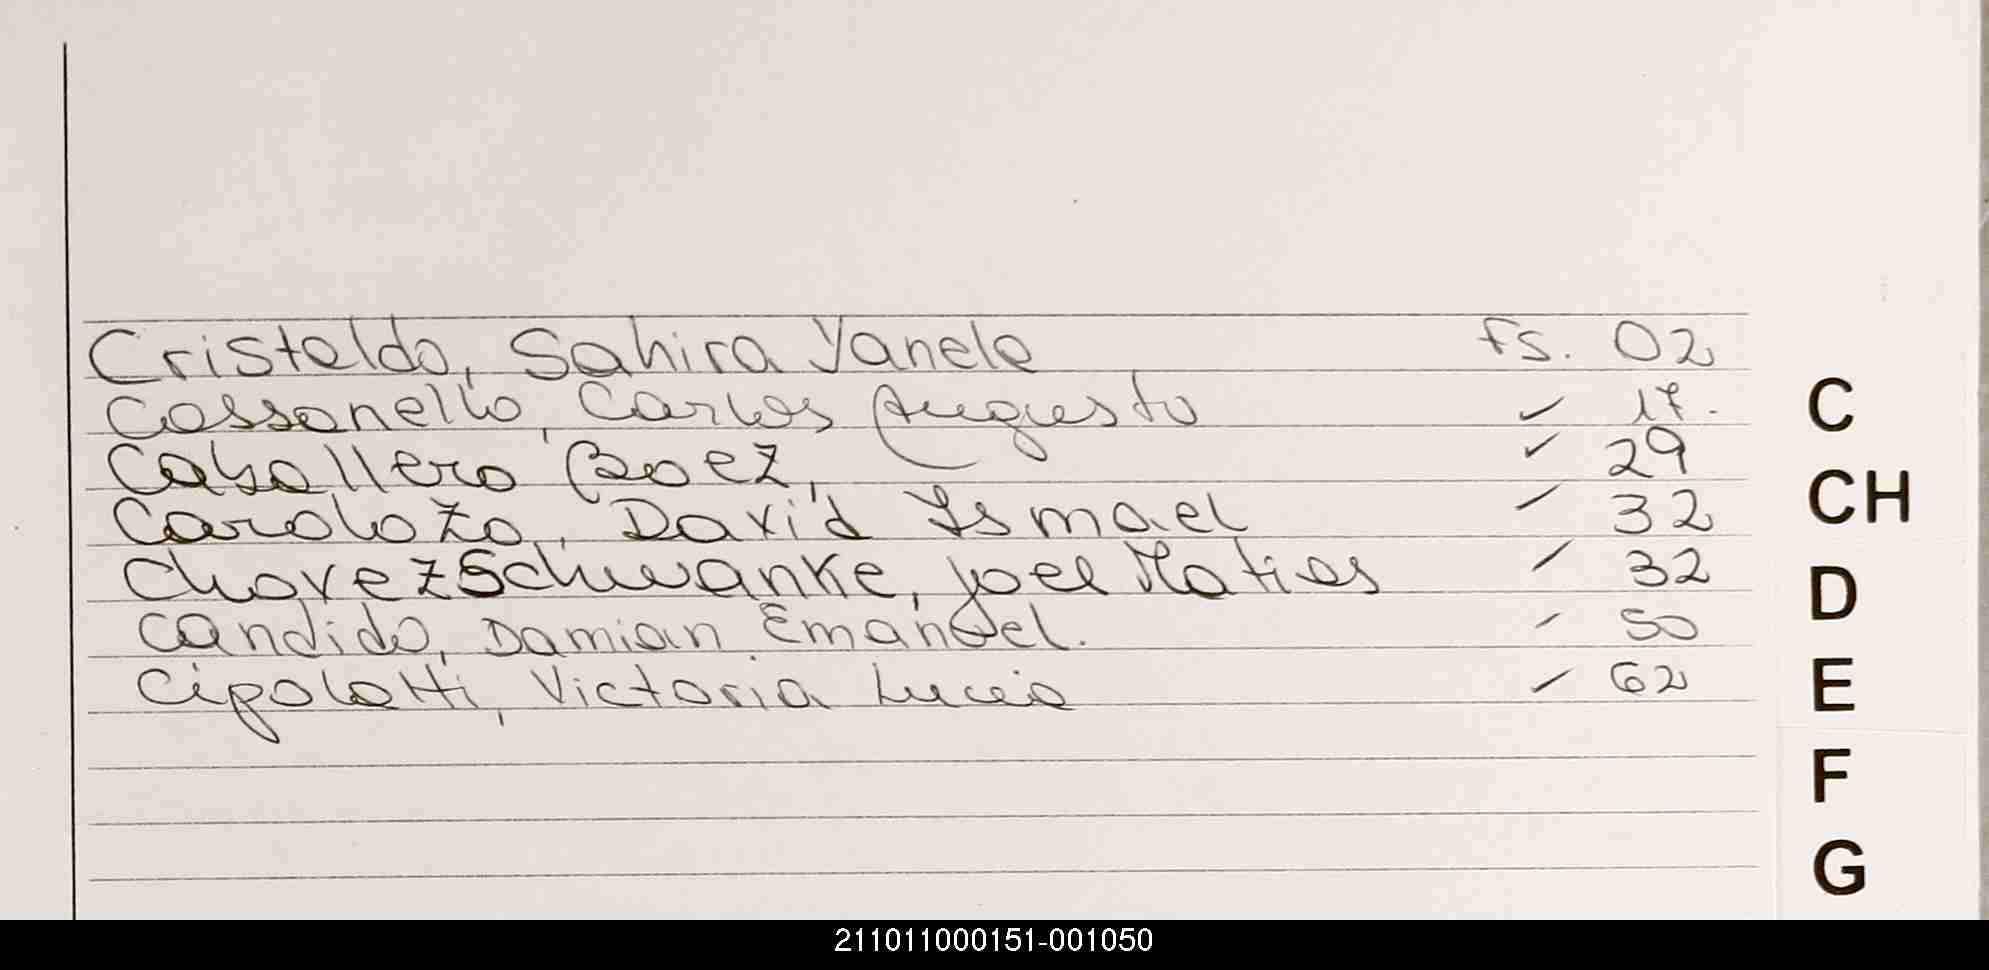 Cristaldo, Sahira Yanela fs. 02
Cassanello, Carlos Augusto ✓ 17.
Caballero Baez, ✓ 29
Cardozo, David Ismael ✓ 32
Chavez Schwanke, Joel Matias ✓ 32
Candido, Damian Emanuel. ✓ 50
Cipolatti, Victoria Lucia ✓ 62
C
CH
D
E
F
G
211011000151-001050